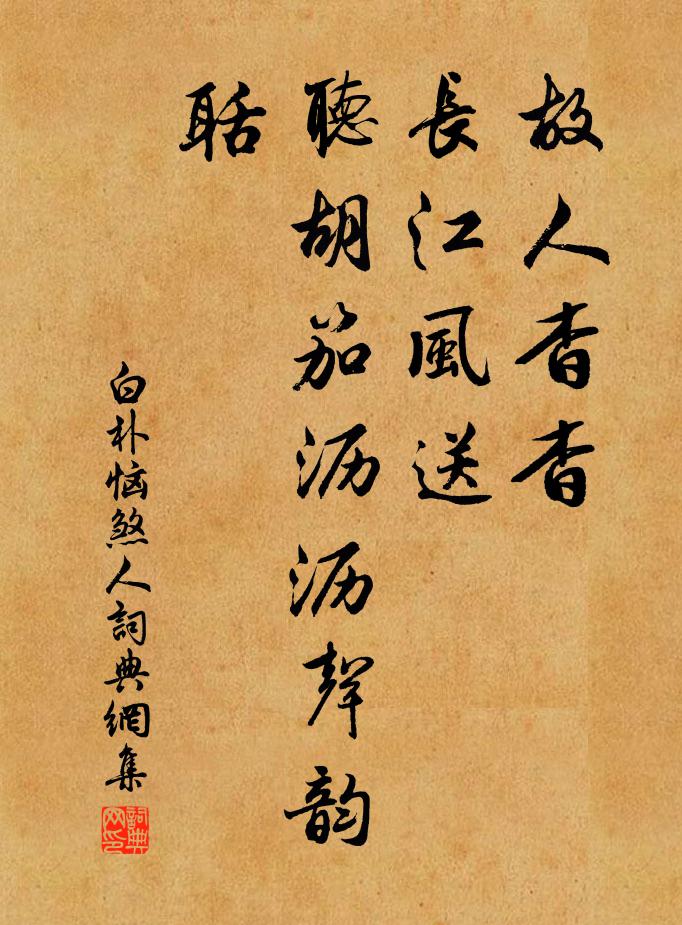 故人杳杳
長江風送
聽胡笳沥沥聲韵
聒
白朴恼煞人詞典網集
詞典
网印